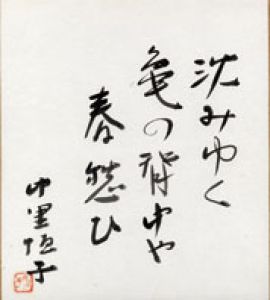 沈みゆく
亀の背中や
春愁ひ
中里恒子